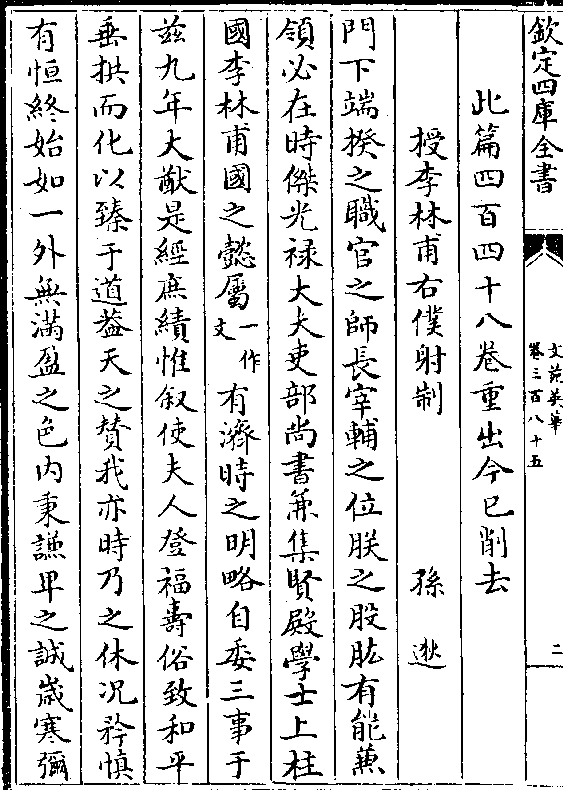 欽定四庫全書
文苑英華
卷三百八十五
二
此篇四百四十八卷重出今已削去
授李林甫右僕射制 孫逖
門下端揆之職官之師長宰輔之位朕之股肱有能兼
領必在時傑光禄大夫吏部尚書兼集賢殿學士上柱
國李林甫國之懿屬一作文有濟時之明略自委三事于
兹九年大猷是經庶績惟叙使夫人登福壽俗致和平
垂拱而化以臻于道葢天之賛我亦時乃之休况矜慎
有恒終始如一外無滿盈之色内秉謙卑之誠嵗寒彌